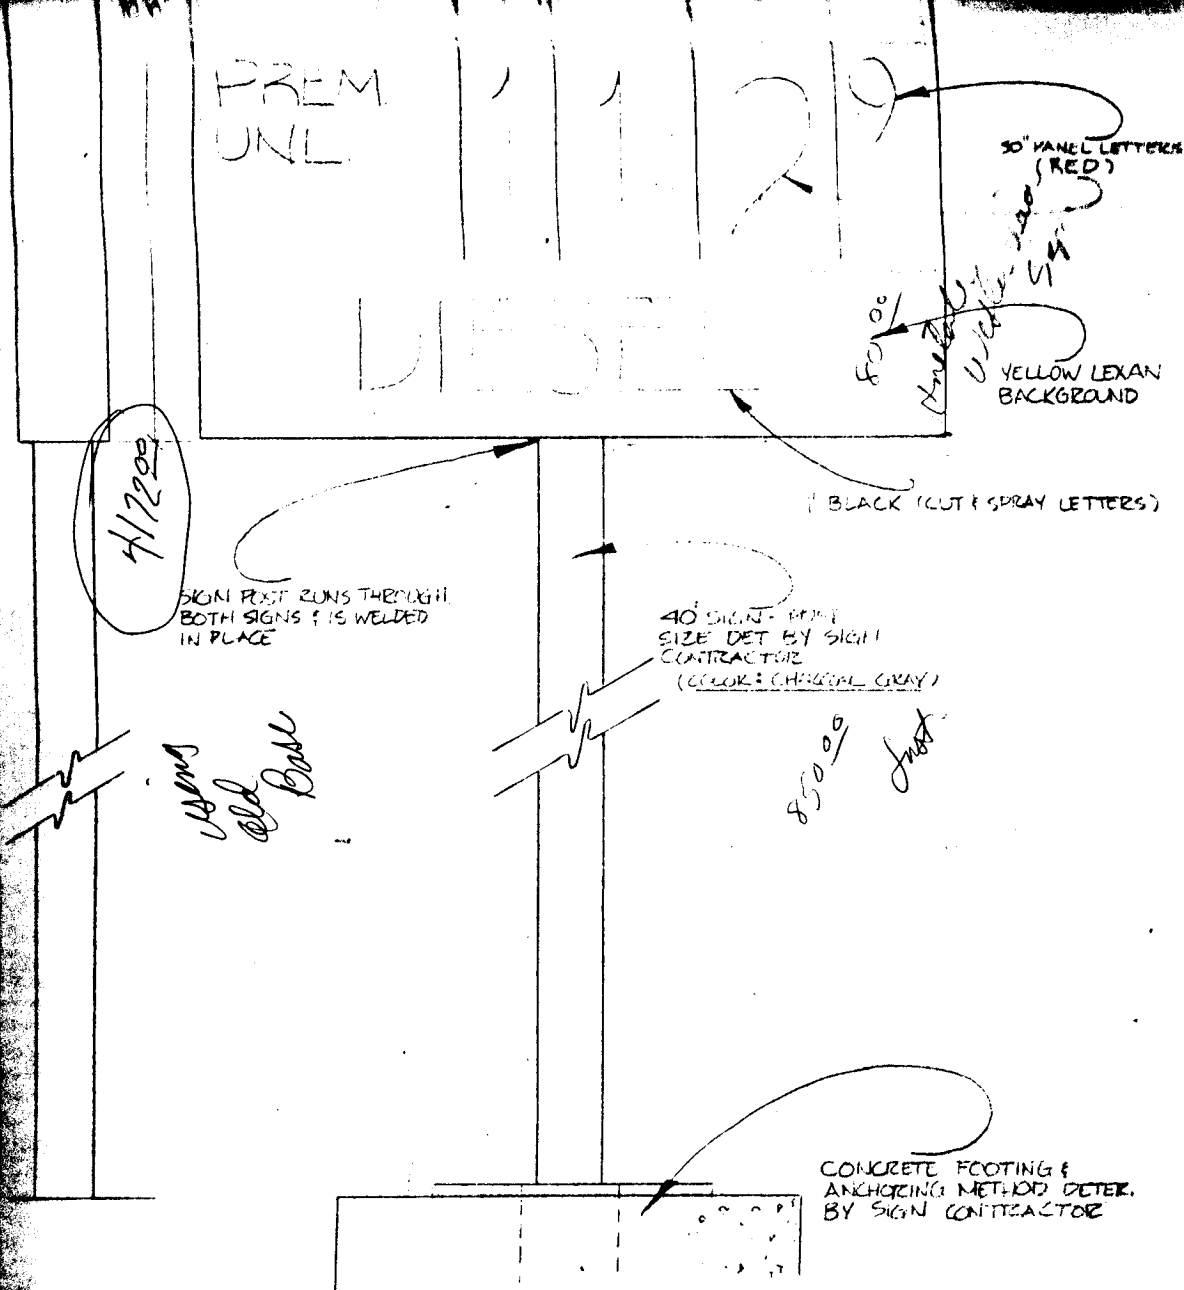 PREM 1 1 2 9
UNL.
30" PANEL LETTERS
(RED)
DIESEL
80.00
YELLOW LEXAN
BACKGROUND
4172.00
BLACK (CUT & SPRAY LETTERS)
SIGN POST RUNS THROUGH
BOTH SIGNS & IS WELDED
IN PLACE
40' SIGN POST
SIZE DET BY SIGN
CONTRACTOR
(COLOR: CHARCOAL GRAY)
using
old
Base
850.00
CONCRETE FOOTING &
ANCHORING METHOD DETER.
BY SIGN CONTRACTOR